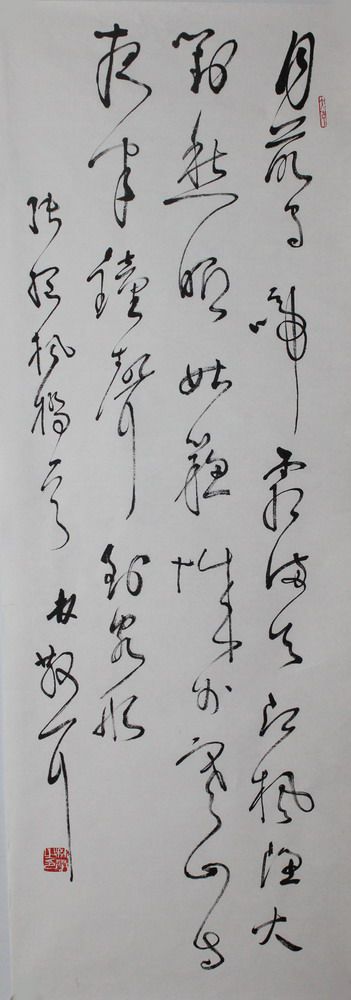 月落烏啼霜滿天江楓漁火
對愁眠姑蘇城外寒山寺
夜半鐘聲到客船
張繼楓橋